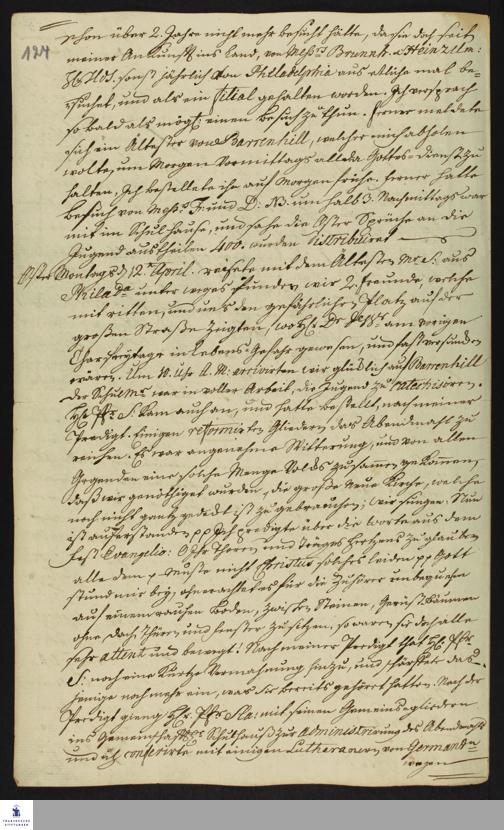 124
schon über 2. Jahre nicht mehr besucht hätte, da sie doch seit
meiner Ankunft ins Land, von
sonst jährlich von Philadelphia aus etliche mal be-
suchet, und als ein filial gehalten worden. Ich versprach
so bald als mögl: einen Besuch zu thun. ferner meldete
sich ein Ältester von Barrenhill, welcher mich abholen
wolte, um Morgen Vormittags allda Gottes-dienst zu
halten, Ich bestellete ihn auf Morgen frühe. ferner hatte
Besuch von um halb 3. Nachmittags war
mit im Schul Hause, und sahe die Oster Sprüche an die
Jugend austheilen 400. wurden distribuiret
Oster Montags d 12 April. reisete mit dem Ältesten Mr S. aus
Philada unterweges funden wir 2. Freunde, welche
mit ritten, und uns den gefährlichen Platz auf der
großen Straße zeigten, wo am vorigen
Charfreytage in Lebens-Gefahr gewesen, und fast versunken
wären. Um 10. Uhr arrivirten wir glücklich auf Barrenhill
der Schulmr war in voller Arbeit, die Jugend zu catechisiren.
kam auch an, und hatte bestellt, nach meiner
Predigt einigen reformirten Gliedern das Abendmahl zu
reichen. Es war angenehme Witterung, und von allen
Gegenden eine solche Menge Volcks zusamen gekomen,
daß wir genöthiget wurden, die große neue Kirche, welche
noch nicht gantz gedeckt ist zu gebrauchen; wir sungen: Nun
ist auferstanden pp Ich predigte über die Worte aus dem
Fest Evangelio: O Ihr Thoren und träges Hertzens zu glauben
alle dem p Muste nicht Christus solches leiden pp Gott
stund mir bey, ohnerachtet es für die Zuhörer unbequem
auf einem rauhen Boden, zwischen Steinen, Gerüst Bäumen
ohne Dach, Thüren und fenster zu sitzen, so waren sie doch alle
sehr attent und bewegt! Nach meiner Predigt that
S: noch eine kurtze Vermahnung hinzu, und schärfete das-
jenige noch mehr ein, was sie bereits gehöret hatten. Nach der
Predigt gieng mit seinen Gemeinsgliedern
ins Schulhauß zur administrirung des Abendmahls
und ich conferirte mit einigen Lutheranern von Germant
wegen
FRANCKESCHE
STIFTUNGEN